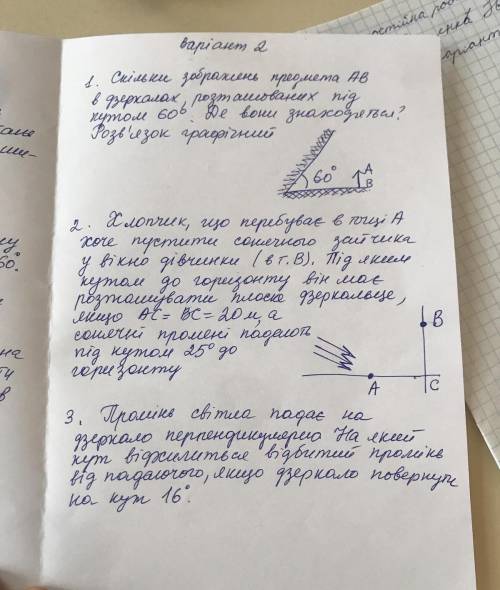 варіант 2
1. Скільки зображень предмета АВ
в дзеркалах, розташованих під
кутом 60°. Де вони знаходяться?
Розв'язок графічний
60°
А
В
2. Хлопчик, що перебуває в точці А
хоче пустити сонячного зайчика
у вікно дівчинки (в т. В). Під яким
кутом до горизонту він має
розташувати плоске дзеркальце,
якщо АС = ВС = 20 м, а
сонячні промені падають
під кутом 25° до
горизонту
В
А
С
3. Промінь світла падає на
дзеркало перпендикулярно На який
кут відхилиться відбитий промінь
від падаючого, якщо дзеркало повернути
на кут 16°.
60°.
на
в